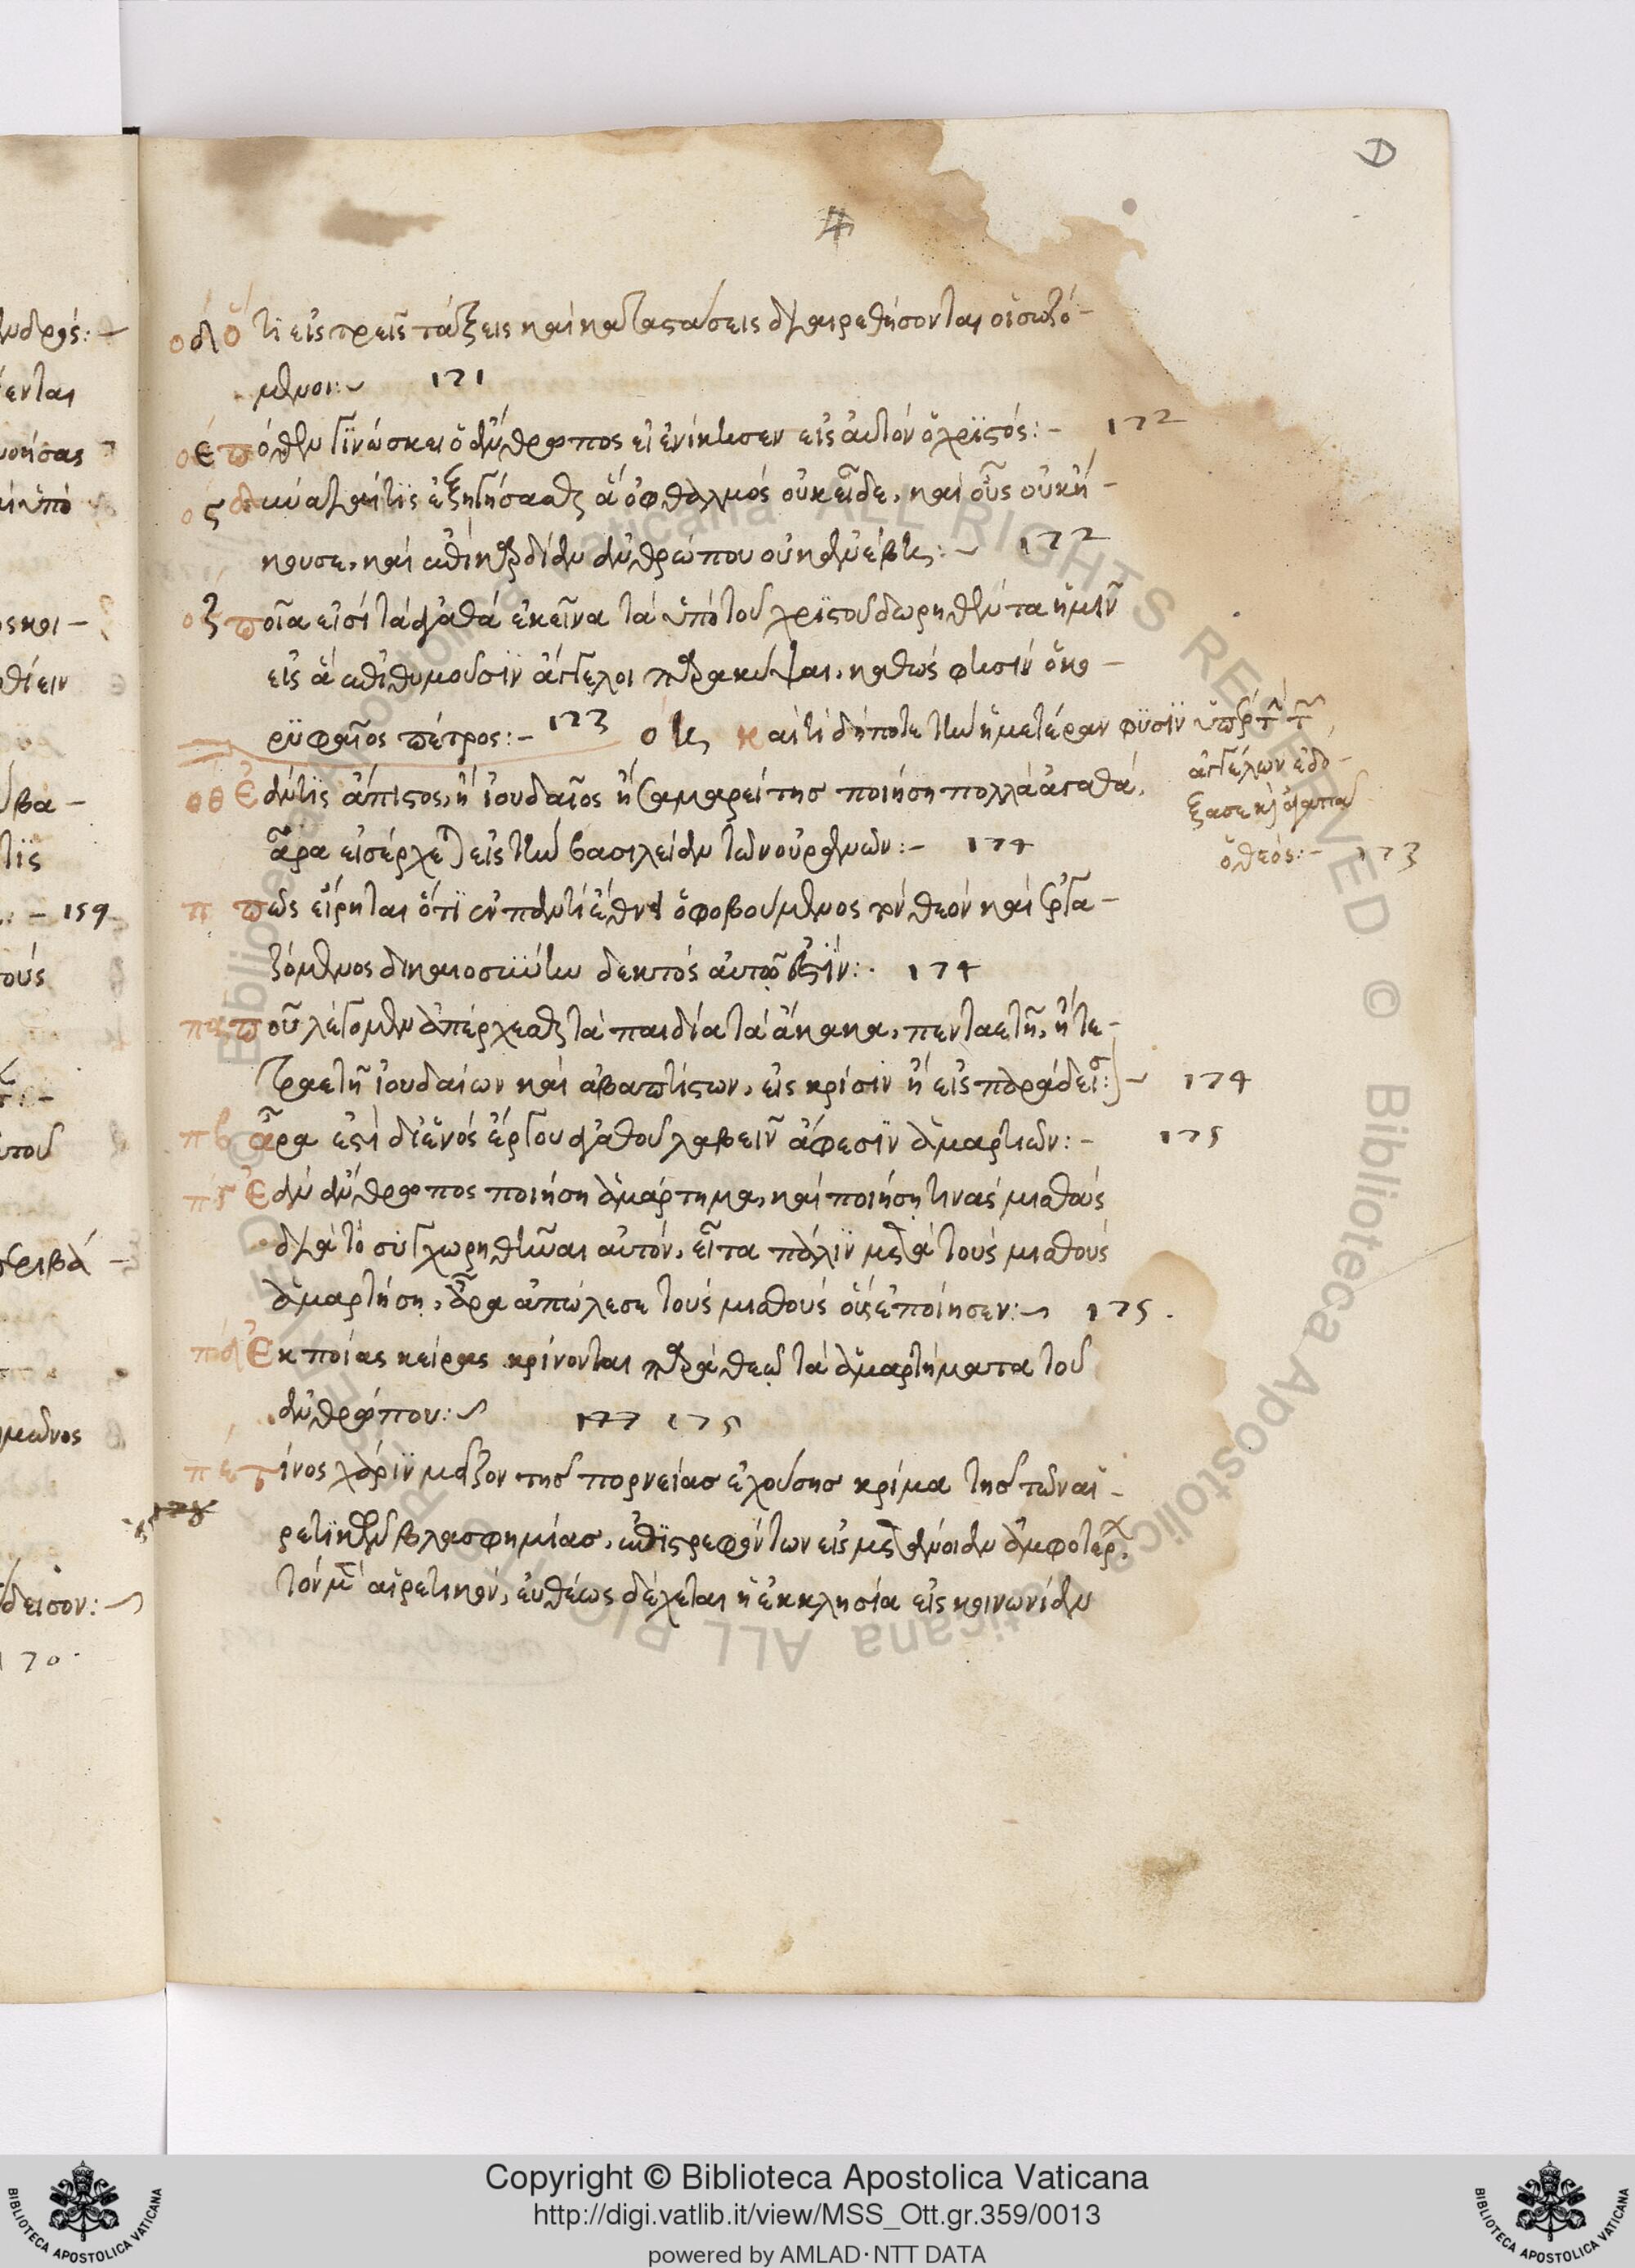 οδ ὅτι εἰς τρεῖς τάξεις καὶ καταστάσεις διαιρεθήσονται οἱ σωζό-
μενοι:~ 171
οε πόθεν γινώσκει ὁ ἄνθρωπος εἰ ἐνίκησεν εἰς αὐτὸν ὁ χριστός:- 172
ος δύναταί τις ἐξηγήσασθαι ἃ ὀφθαλμὸς οὐκ εἶδε, καὶ οὖς οὐκ ἤ-
κουσε, καὶ ἐπὶ καρδίαν ἀνθρώπου οὐκ ἀνέβη:~ 172
οζ ποῖα εἰσὶ τὰ ἀγαθὰ ἐκεῖνα τὰ ὑπὸ τοῦ χριστοῦ δωρηθέντα ἡμῖν
εἰς ἃ ἐπιθυμοῦσιν ἄγγελοι παρακύψαι, καθώς φησὶν ὁ κο-
ρυφαῖος πέτρος:- 173 οη καὶ τί δήποτε τὴν ἡμετέραν φύσιν ὑπὲρ τὴν τῶν
ἀγγέλων ἐδό-
ξασε καὶ ἀγαπᾶ
ὁ θεός:- 173
οθ Ἐάν τις ἄπιστος, ἢ ἰουδαῖος ἢ σαμαρείτης ποιήση πολλὰ ἀγαθά,
ἆρα εἰσέρχεται εἰς τὴν βασιλείαν τῶν οὐρανῶν:- 174
π πῶς εἴρηται ὅτι ἐν παντὶ ἔθνει ὁ φοβούμενος τὸν θεὸν καὶ ἐργα-
ζόμενος δικαιοσύνην δεκτὸς αὐτῷ ἐστίν:· 174
πα ποῦ λέγομεν ἀπέρχεσθαι τὰ παιδία τὰ ἄκακα, πενταετῆ, ἢ τε-
τραετῆ ἰουδαίων καὶ ἀβαπτίστων, εἰς κρίσιν ἢ εἰς παράδεισον:~ 174
πβ ἆρα ἐστὶ δι ἑνὸς ἔργου ἀγαθοῦ λαβεῖν ἄφεσιν ἁμαρτιῶν:- 175
πγ Ἐὰν ἄνθρωπος ποιήση ἁμάρτημα, καὶ ποιήσῃ τινὰς μισθοὺς
διὰ τὸ συγχωρηθῆναι αὐτόν, εἶτα πάλιν μετὰ τοὺς μισθοὺς
ἁμαρτήσῃ, ἆρα ἀπώλεσε τοὺς μισθοὺς οὓς ἐποίησεν:~ 175.
πδ Ἐκ ποίας πείρας κρίνονται παρὰ θεῷ τὰ ἁμαρτήματα τοῦ
ἀνθρώπου:~ 175
πε τίνος χάριν μεῖζον τῆς πορνείας ἐχούσης κρίμα τῆς τῶν αἱ-
ρετικῶν βλασφημίας, ἐπιστρεφόντων εἰς μετάνοιαν ἀμφοτέρων,
τὸν μὲν αἱρετικόν, εὐθέως δέχεται ἡ ἐκκλησία εἰς κοινωνίαν
ενται
159
τοὺς
170.
Copyright © Biblioteca Apostolica Vaticana
http://digi.vatlib.it/view/MSS_Ott.gr.359/0013
powered by AMLAD·NTT DATA
BIBLIOTECA APOSTOLICA VATICANA
BIBLIOTECA APOSTOLICA VATICANA